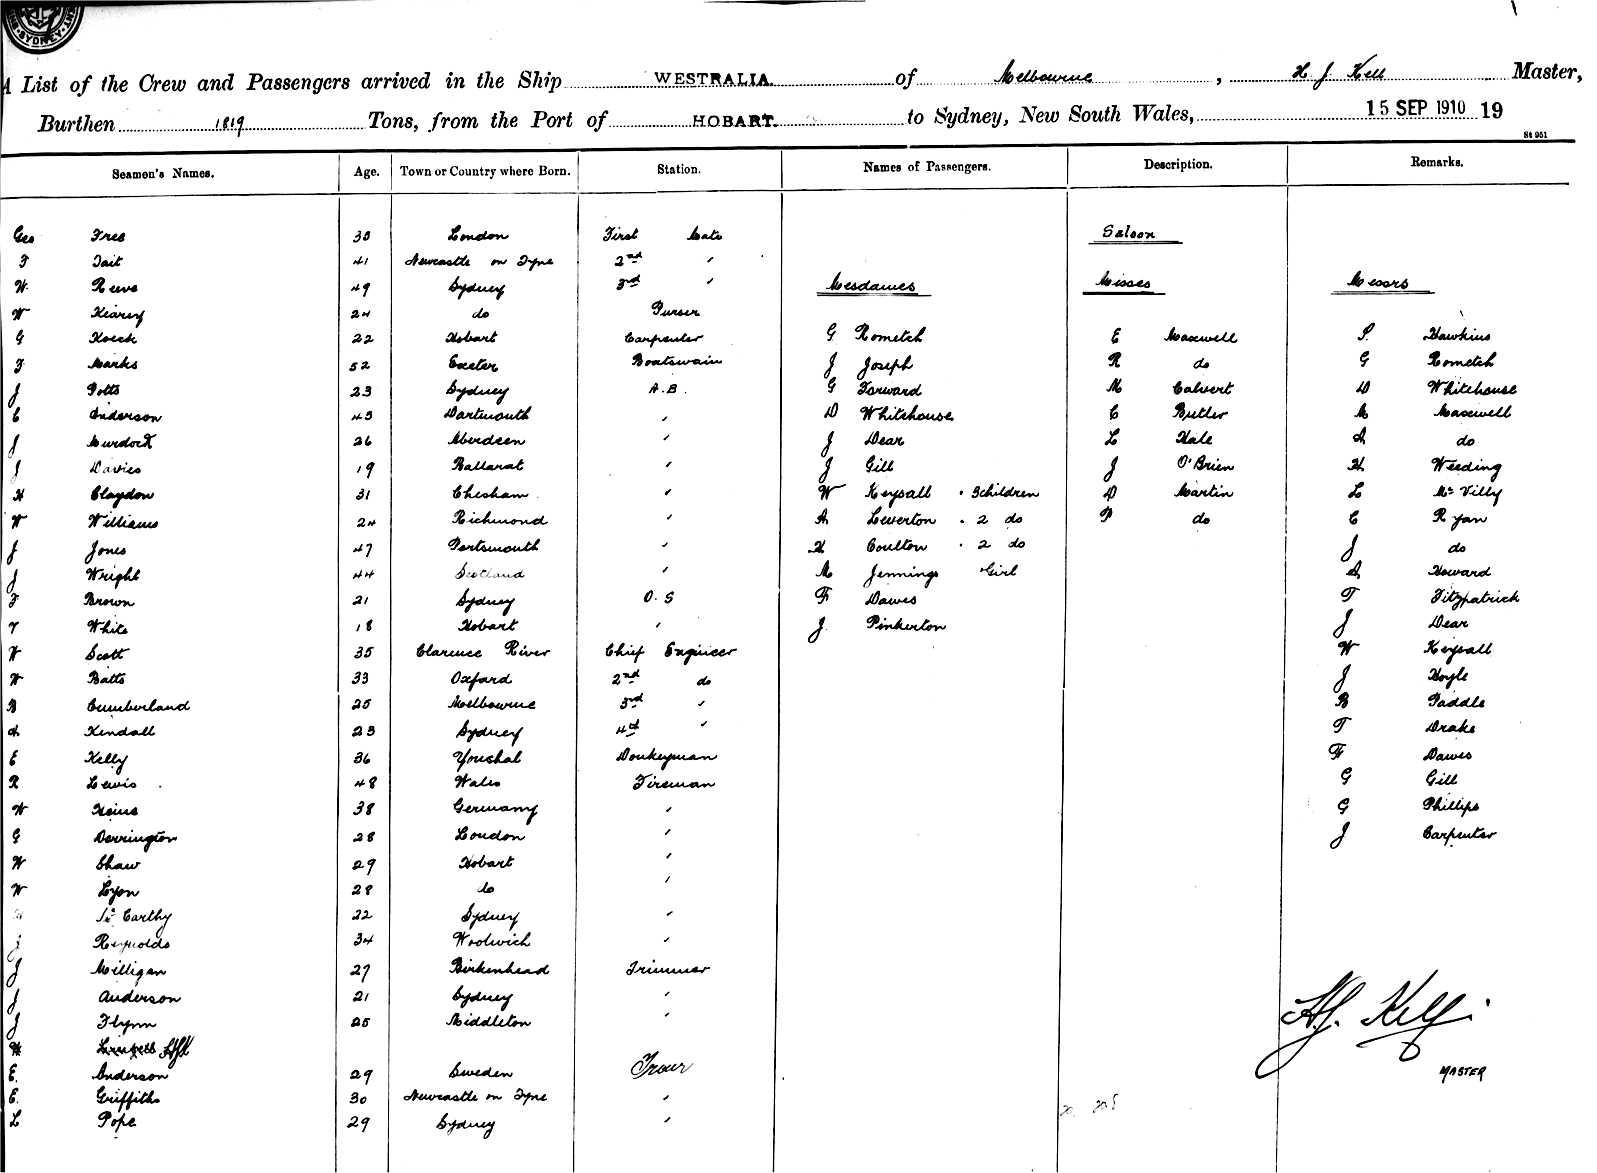 SYDNEY
A List of the Crew and Passengers arrived in the Ship WESTRALIA. of Melbourne, H J. Kell Master,
Burthen 1819 Tons, from the Port of HOBART. to Sydney, New South Wales, 15 SEP 1910 19
St 951
Seamen's Names. Age. Town or Country where Born. Station. Names of Passengers. Description. Remarks.
Geo 35 London First Mate Saloon
F Tait 41 Newcastle on Tyne 2nd "
W. Reeve 49 Sydney 3rd " Mesdames Misses Messrs
W Kearey 24 do Purser
G 22 Hobart Carpenter G Rometch E Maxwell P. Hawkins
F Marks 52 Exeter Boatswain J Joseph R do G Rometch
J Potts 23 Sydney A.B. G Forward M Calvert D Whitehouse
C Anderson 45 Dartmouth " D Whitehouse C Butler M Maxwell
J Murdock 26 Aberdeen " J Dear L Hale A do
J Davies 19 Ballarat " J Gill J O'Brien H Weeding
H Claydon 31 Chesham " W Keysall . 3 children D Martin L McVilly
W Williams 24 Richmond " A Leverton . 2 do P do C Ryan
J Jones 47 Portsmouth " H Coulton . 2 do J do
J Wright 44 Scotland " M Jennings Girl A Howard
F Brown 21 Sydney O.S F Dawes T Fitzpatrick
V White 18 Hobart " J. Pinkerton J Dear
W Scott 35 Clarence River Chief Engineer W Keysall
W Batts 33 Oxford 2nd do J Hoyle
B Cumberland 25 Melbourne 3rd " B Paddle
A Kendall 23 Sydney 4th " T Drake
E Kelly 36 Youghal Donkeyman F Dawes
R Lewis 48 Wales Fireman G Gill
W Heins 38 Germany " G Phillips
G Derrington 28 London " J Carpenter
W Shaw 29 Hobart "
W Lyon 28 do "
McCarthy 22 Sydney "
J Reynolds 34 Woolwich "
J Milligan 27 Birkenhead Trimmer
J Anderson 21 Sydney "
J Flynn 25 Middleton "
H. J. Kell
E. Anderson 29 Sweden MASTER
E. Griffiths 30 Newcastle on Tyne "
L Pope 29 Sydney "